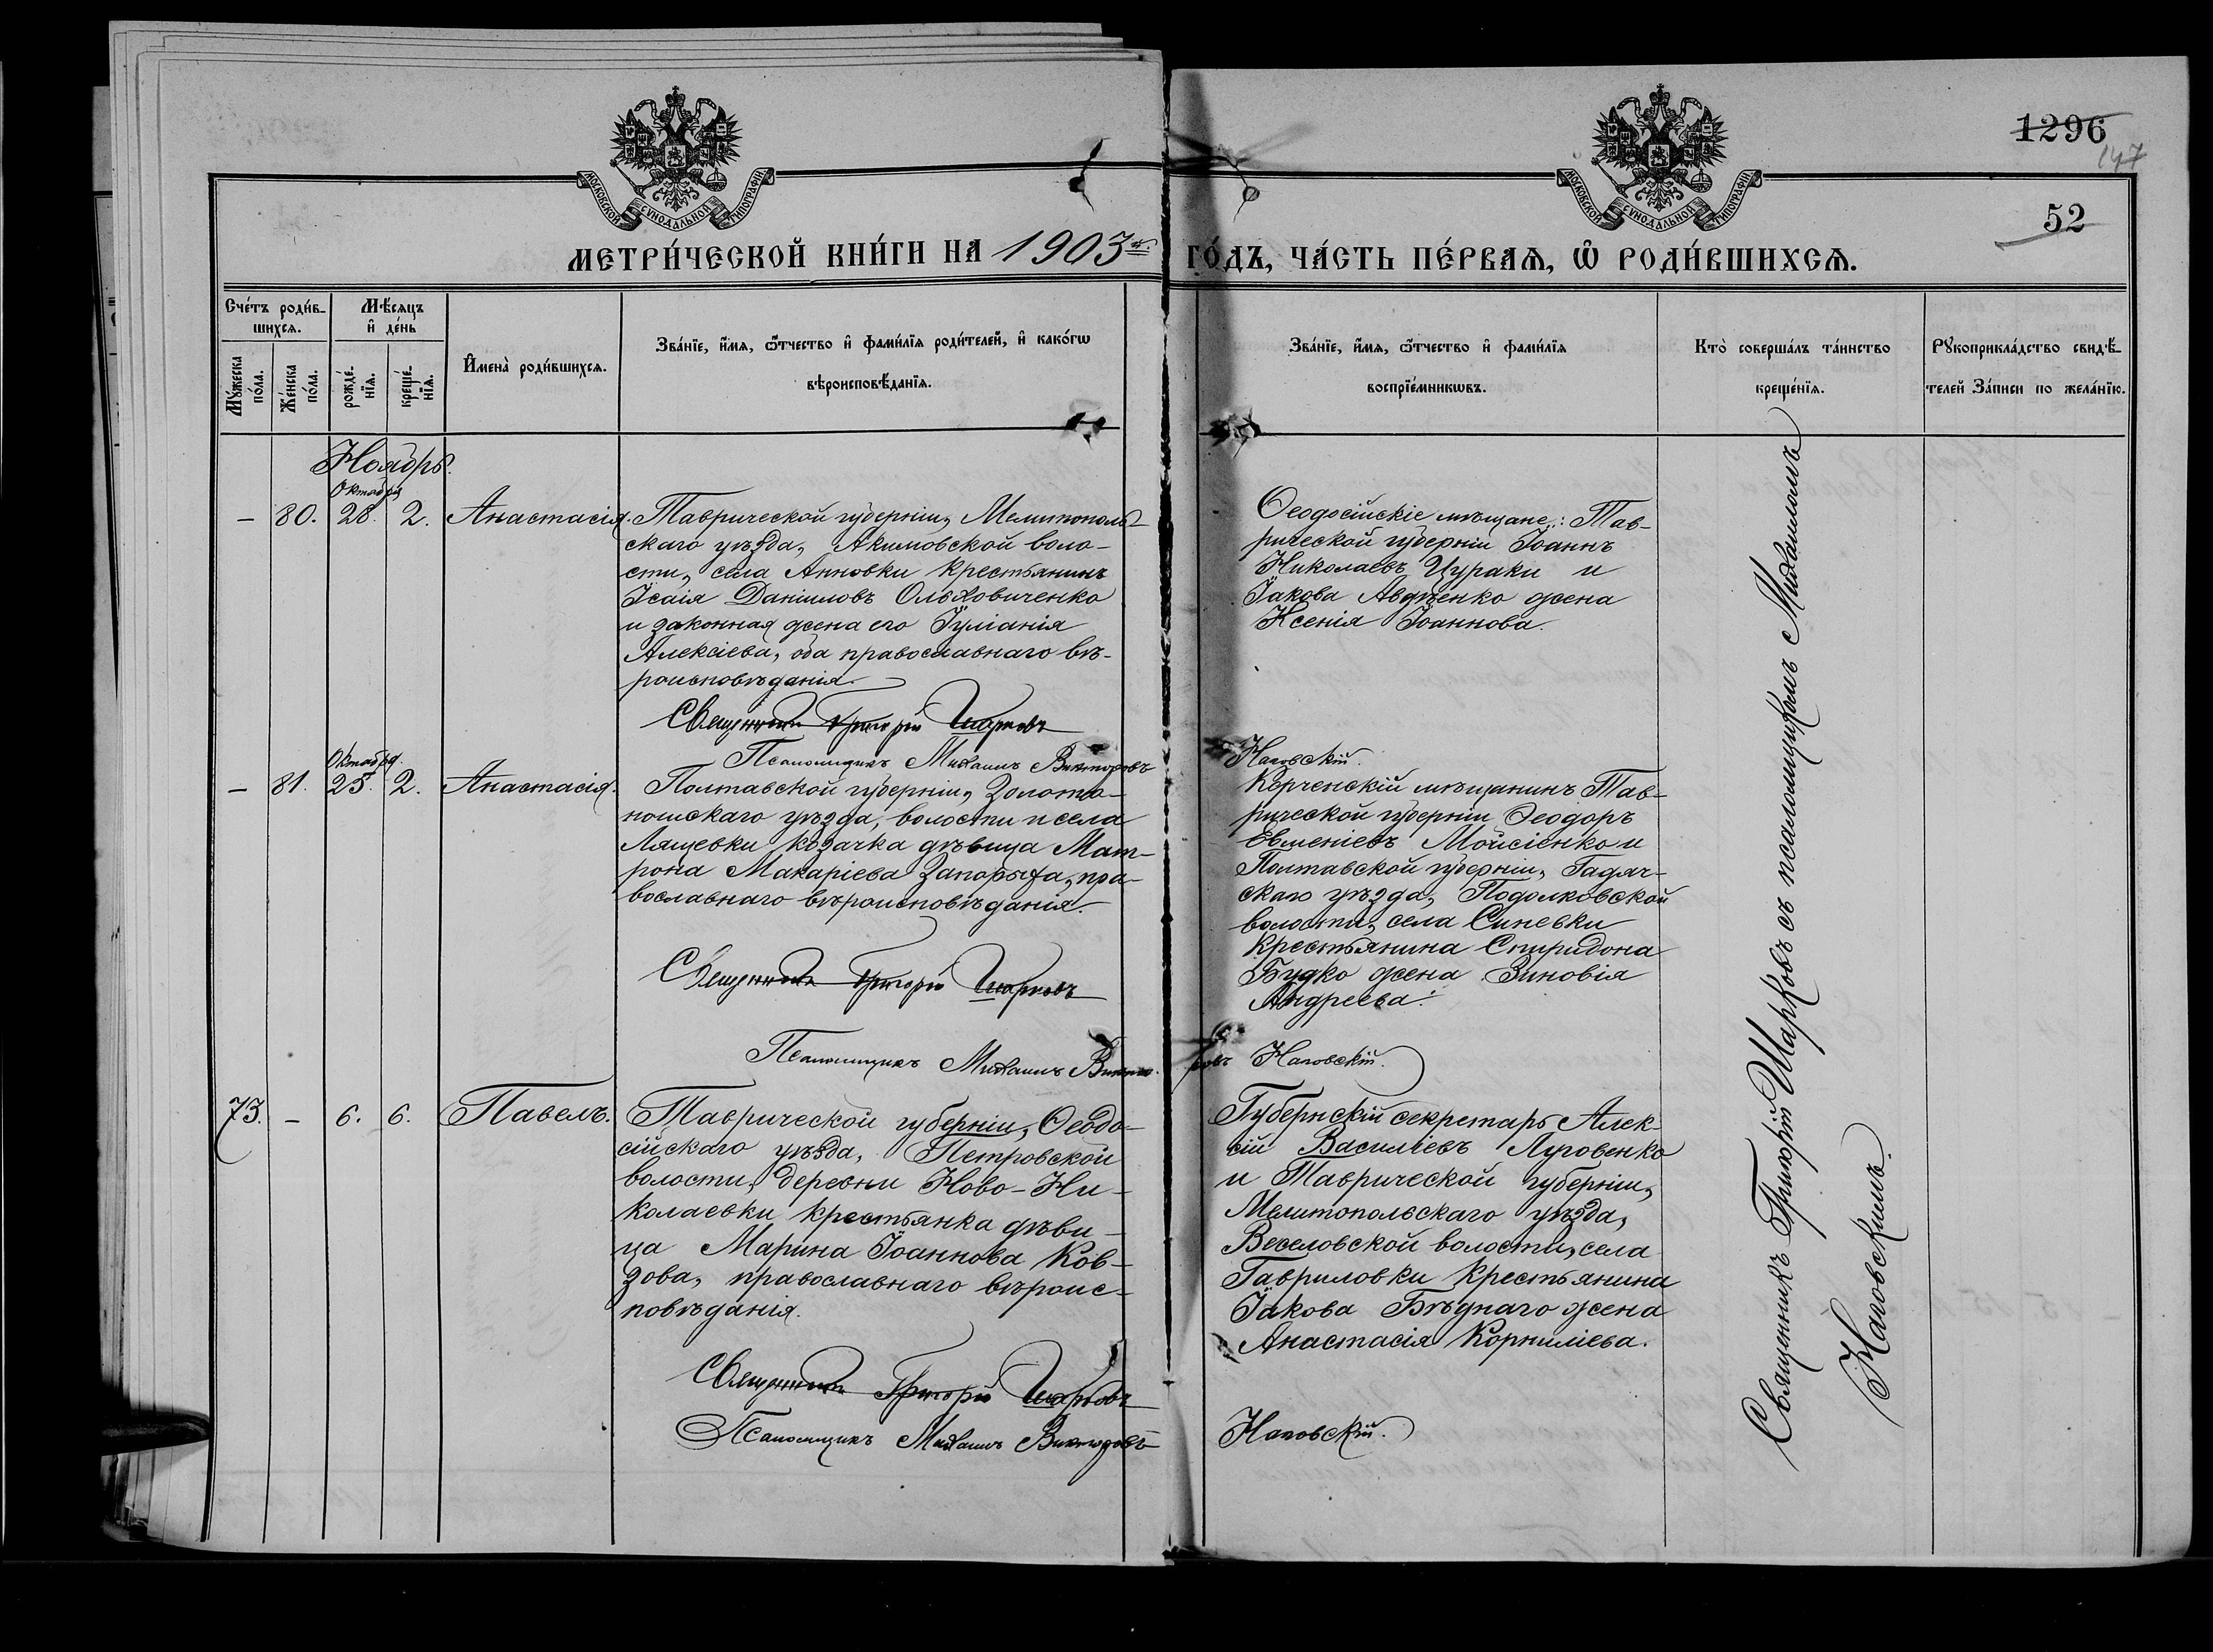 МОСКОВСКОЙ СѴНОДАЛЬНОЙ ТИПОГРАФІИ
МОСКОВСКОЙ СѴНОДАЛЬНОЙ ТИПОГРАФІИ
1296
147
52
МЕТРИ́ЧЕСКОЙ КНИ́ГИ НА 1903й ГО́ДЪ, ЧА́СТЬ ПЕ́РВАѦ, Ѡ҆ РОДИ́ВШИХСѦ.
Сче́тъ роди́в-
шихсѧ.
Мꙋ́жеска по́ла.
Же́нска по́ла.
Мѣ́сѧцъ
и҆ де́нь
рожде́-
нїѧ.
креще́-
нїѧ.
И҆мена̀ роди́вшихсѧ.
Зва́нїе, и҆́мѧ, ѻ҆́тчество и҆ фами́лїѧ роди́телей, и҆ како́гѡ
вѣроисповѣ́данїѧ.
Зва́нїе, и҆́мѧ, ѻ҆́тчество и҆ фами́лїѧ
воспрїе́мникѡвъ.
Кто̀ соверша́лъ та́инство
креще́нїѧ.
Рꙋкоприкла́дство свидѣ́-
телей За́писи по жела́нїю.
Ноябрь.
Октября
— 80. 28. 2. Анастасія.
Таврической губерніи, Мелитополь-
скаго уѣзда, Акимовской воло-
сти, села Анновки крестьянинъ
Ісаія Даніиловъ Ольховиченко
и законная жена его Іуліанія
Алексіева, оба православнаго вѣ-
роисповѣданія.
Священникъ Григорій Шарковъ
Псаломщикъ Михаилъ Викторовъ
Ѳеодосійскіе мѣщане: Тав-
рической губерніи Іоаннъ
Николаевъ Цураки и
Іакова Авдѣенко жена
Ксенія Іоаннова.
Наговскій.
Октября.
— 81. 25. 2. Анастасія.
Полтавской губерніи, Золото-
ношскаго уѣзда, волости и села
Лящевки козачка дѣвица Мат-
рона Макаріева Запорыха, пра-
вославнаго вѣроисповѣданія.
Священникъ Григорій Шарковъ
Псаломщикъ Михаилъ Викто-
Керченскій мѣщанинъ Тав-
рической губерніи Ѳеодоръ
Евменіевъ Мойсіенко и
Полтавской губерніи, Гадяч-
скаго уѣзда, Подолковской
волости, села Синевки
крестьянина Спиридона
Будко жена Зиновія
Андреева.
ровъ Наговскій.
73. — 6. 6. Павелъ.
Таврической губерніи, Ѳеодо-
сійскаго уѣзда, Петровской
волости, деревни Ново-Ни-
колаевки крестьянка дѣви-
ца Марина Іоаннова Ков-
зова, православнаго вѣроис-
повѣданія.
Священникъ Григорій Шарковъ
Псаломщикъ Михаилъ Викторовъ
Губернскій секретарь Алек-
сій Василіевъ Луговенко
и Таврической губерніи,
Мелитопольскаго уѣзда,
Веселовской волости, села
Гавриловки крестьянина
Іакова Бѣднаго жена
Анастасія Корниліева.
Наговскій.
Священникъ Григорій Шарковъ съ псаломщикомъ Михаиломъ
Наговскимъ.